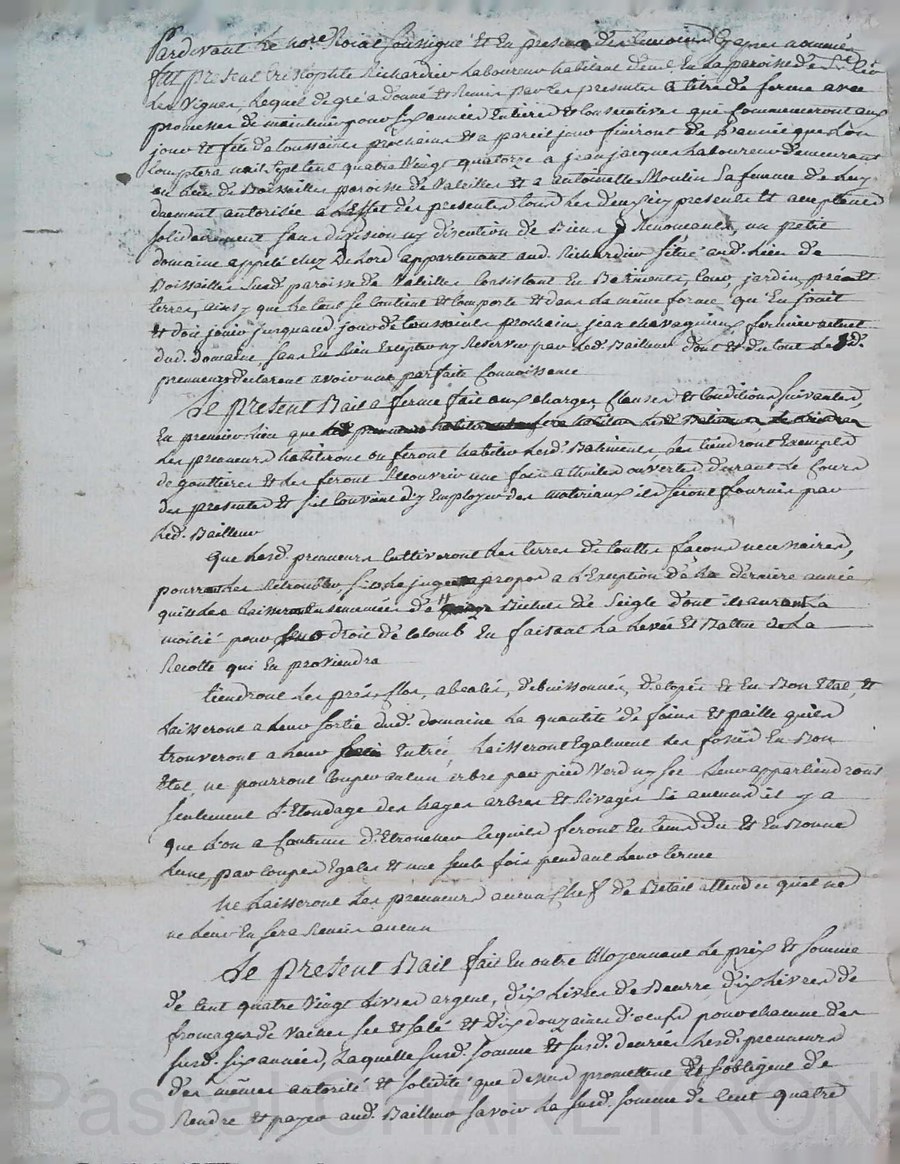 Pardevant le nore Roial soussigné et en presence des temoins cy apres nommés
fut present Cristophle Richardier laboureur habitant de en la paroisse de St
les Vignes, lequel de gré a donné et remis par les presentes a titre de ferme avec
promesse de maintenir pour six années entieres et consecutives qui commenceront aux
jour et fête de toussaints prochains et a pareil jour finiront de l'année que l'on
comptera mil sept cent quatre vingt quatorze a jean jacques laboureur demeurant
au lieu de Boissailles paroisse de Valeilles et a antoinette Moulin sa femme de luy
duement autorisée a l'effet des presentes tous les deux icy presents et acceptants
solidairement sans division ny discution de biens y Renonceants, un petit
domaine appelé chez appartenant aud. Richardier situé aud. lieu de
Boissailles susd. paroisse de Valeilles consistant en Batiments, cour, jardin, prés et
terres, ainsy que le tout se contient et comporte et dans la même forme qu'en jouit
et doit jouir jusquaud jour de toussaints prochain jean chavagneux fermier actuel
dud. domaine sans en rien excepter ny reserver par led. Bailleur dont et du tout lesd.
preneurs declarent avoir une parfaite connoissance
Le present Bail a ferme fait aux charges, clauses et conditions suivantes,
En premier lieu que
les preneurs habiteront ou feront habiter lesd. Batiments, les tiendront exempts
de gouttieres et les feront recouvrir une fois a thuiles ouvertes durant le cours
des presentes et s'il convient d'y employer des materiaux ils seront fournis par
led. Bailleur
Que lesd. preneurs cultiveront les terres de touttes façons necessaires,
pourront les retroubler s'ils le jugent a propos a l'exeption de la derniere année
qu'ils les laisseront ensemencées de 11 Bichets de seigle dont ils auront la
moitié pour droit de colomb en faisant la levée et Battue de la
Recolte qui en proviendra
tiendront les prés, clos, abealés, debuissonnés, détopés et en Bon Etat, et
laisseront a leur sortie dud. domaine la quantité de foins et paille qu'ils
trouveront a leur Entrée, laisseront également les fossés en Bon
Etat, ne pourront couper aucun arbre par pied verd ny sec leur appartiendront
seulement l'Elondage des hayes arbres et Rivages si aucuns il y a
que l'on a coutume d'Etroncher lequels feront en tems du et en Bonne
Lune, par coupes Egales et une seule fois pendant leur terme
Ne laisseront les preneurs aucun chef de Betail attendu qu'il ne
ne leur en sera remis aucun
Le present Bail fait en outre moyennant le prix et somme
de cent quatre vingt livres argent, dix livres de Beurre dix livres de
fromages de vaches sec et salé et dix douzaines d'oeufs pour chacune des
susd. six années, laquelle susd. somme et susd. denrées lesd. preneurs
des mêmes autorité et solidité que dessus promettent et s'obligent de
Rendre et payer aud. Bailleur savoir la susd. somme de cent quatre
Pascal CHAREYRON